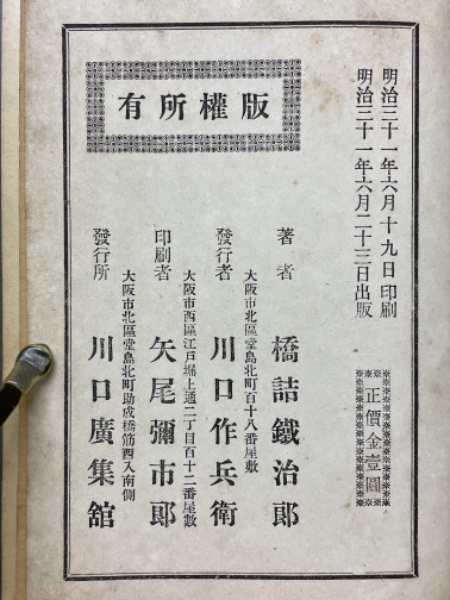 明治三十一年六月十九日印刷
明治三十一年六月二十三日出版
正價金壹圓
版權所有
著者 橋詰鐵治郎
大阪市北區堂島北町百十八番屋敷
發行者 川口作兵衛
大阪市西區江戸堀上通二丁目百十二番屋敷
印刷者 矢尾彌市郎
大阪市北區堂島北町助成橋筋西入南側
發行所 川口廣集舘